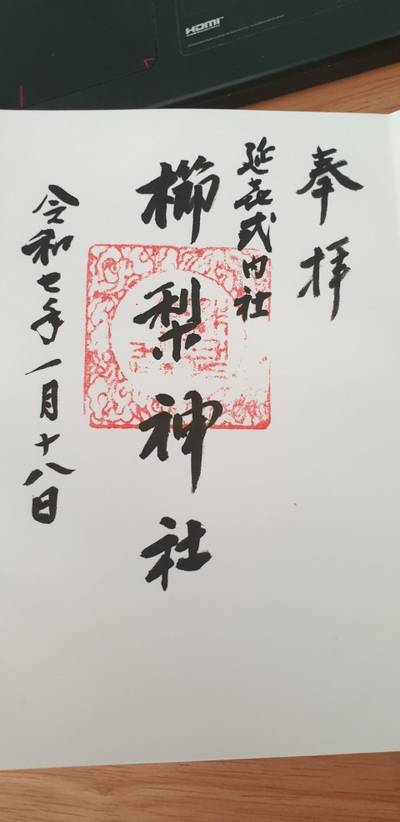 HDMI
奉拝
延喜式内社
櫛梨神社
令和七年一月十八日